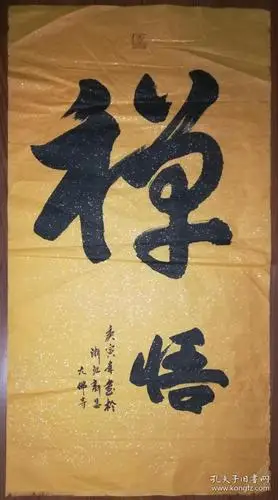 禅
悟
庚寅年書於
浙江新昌
大佛寺
孔夫子旧书网
www.kongfz.com